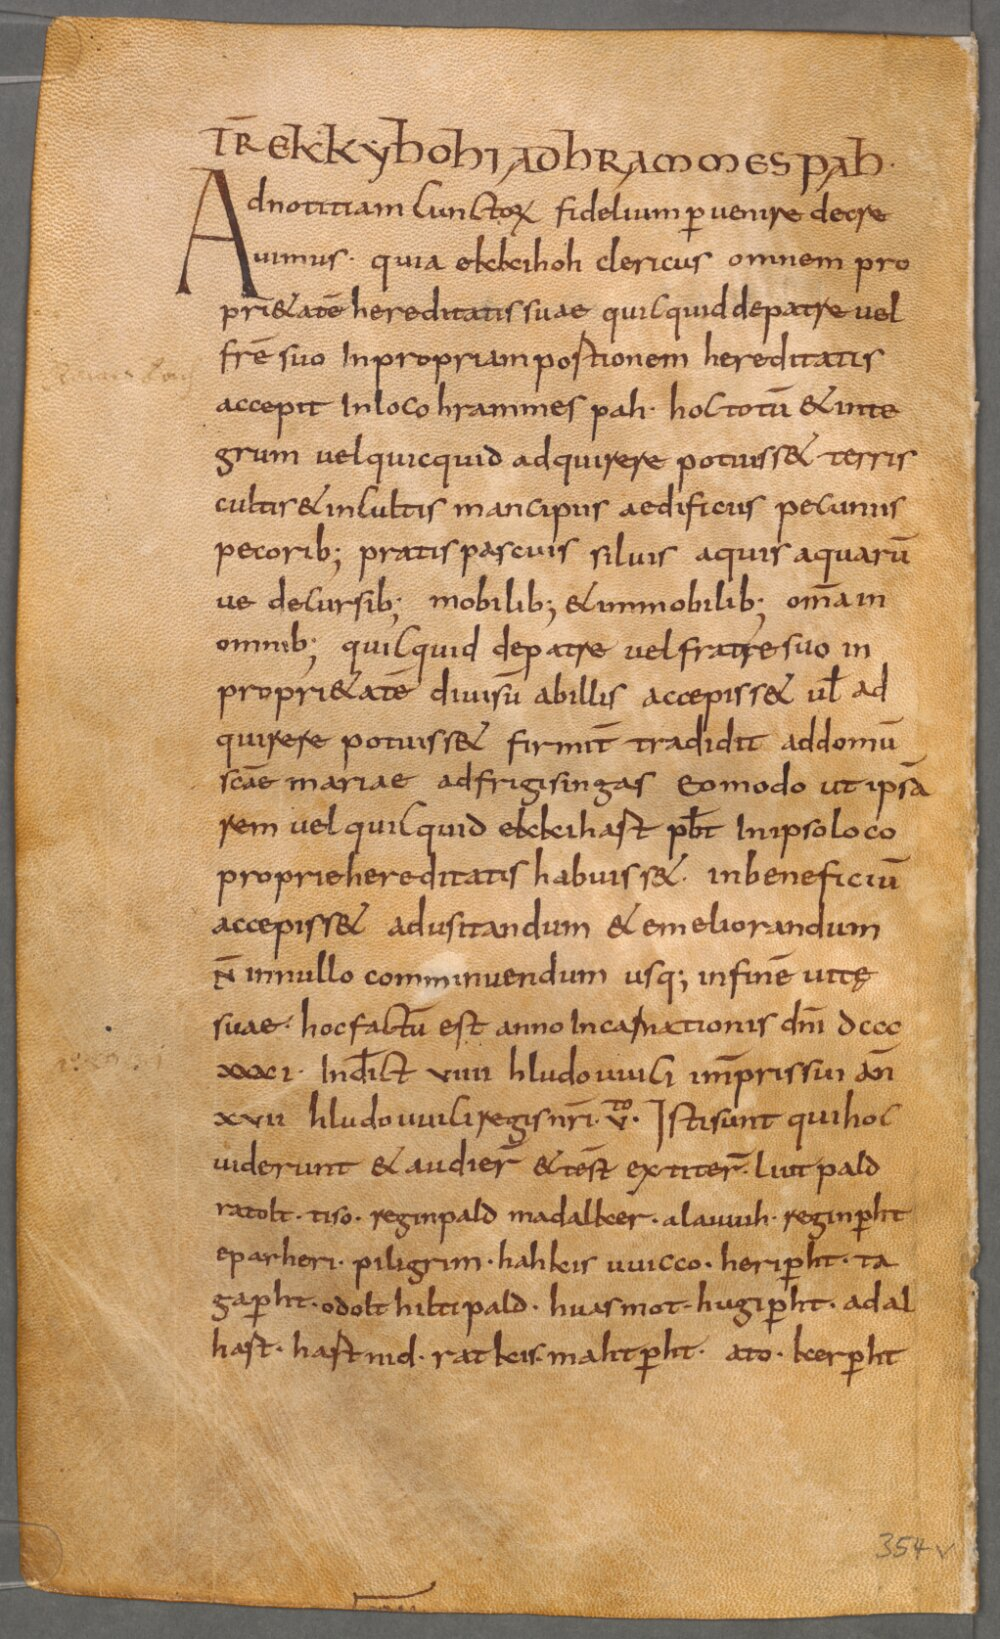 TR̄ EKKYHOHI AD HRAMMESPAH·
Ad notitiam cunctoꝝ fidelium ꝑuenire decre
uimus· quia ekkihoh clericus omnem pro
pri&atē hereditatis suae quicquid de patre uel
frē suo In propriam portionem hereditatis
accepit In loco hrammes pah· hoc totū & inte
grum uel quicquid adquirere potuiss& terris
cultis & incultis mancipiis aedificiis pecuniis
pecorib; pratis pascuis siluis aquis aquarū
ue decursib; mobilib; & inmobilib; om̄a in
omnib; quicquid de patre uel fratre suo in
propri&atē diuisū ab illis accepiss& ul̄ ad
quirere potuiss& firmit̄ tradidit ad domū
scāe mariae ad frigisingas Eo modo ut ipsā
rem uel quicquid ekkihast pb̄t In ipso loco
proprie hereditatis habuiss&· in beneficiū
accepiss& ad usitandum & emeliorandum
n̄ in nullo comminuendum usq; in finē uitę
suae· hoc factū est anno Incarnationis dn̄i dccc
xxxi· Ind̄ict viiii hludouuici im̄p rissimi an̄
xvii hludouuici regis nr̄i· v̄ᵗᵒ· Isti sunt qui hoc
uiderunt & audier̄ & tēst extiter̄· liutpald
ratolt· tiso· reginpald madalker· alauuih· reginꝑht
eparheri· piligrim· hahkis uuicco· heriꝑht· ta
gaꝑht· odolt hiltipald· huasmot· hugiꝑht· adal
hast· hastnid· ratkis· mahtꝑht· ato· kerꝑht
354v